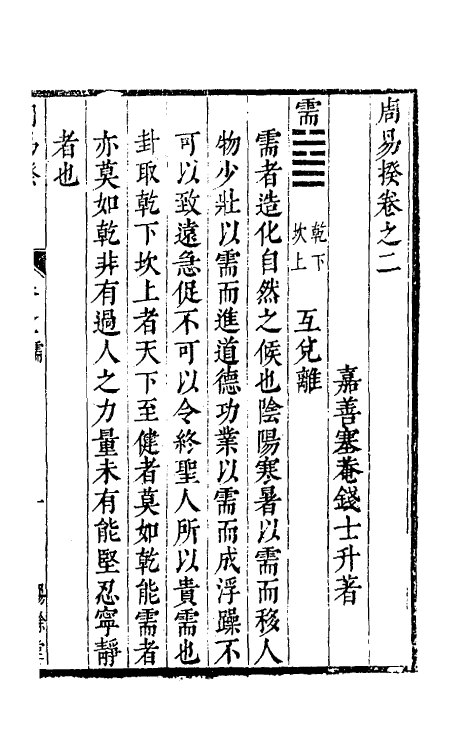 周易揆卷之二
嘉善塞菴錢士升著
需䷄
乾下
坎上
互兌離
需者造化自然之候也陰陽寒暑以需而移人
物少壯以需而進道德功業以需而成浮躁不
可以致遠急促不可以令終聖人所以貴需也
卦取乾下坎上者天下至健者莫如乾能需者
亦莫如乾非有過人之力量未有能堅忍寧靜
者也
需
一